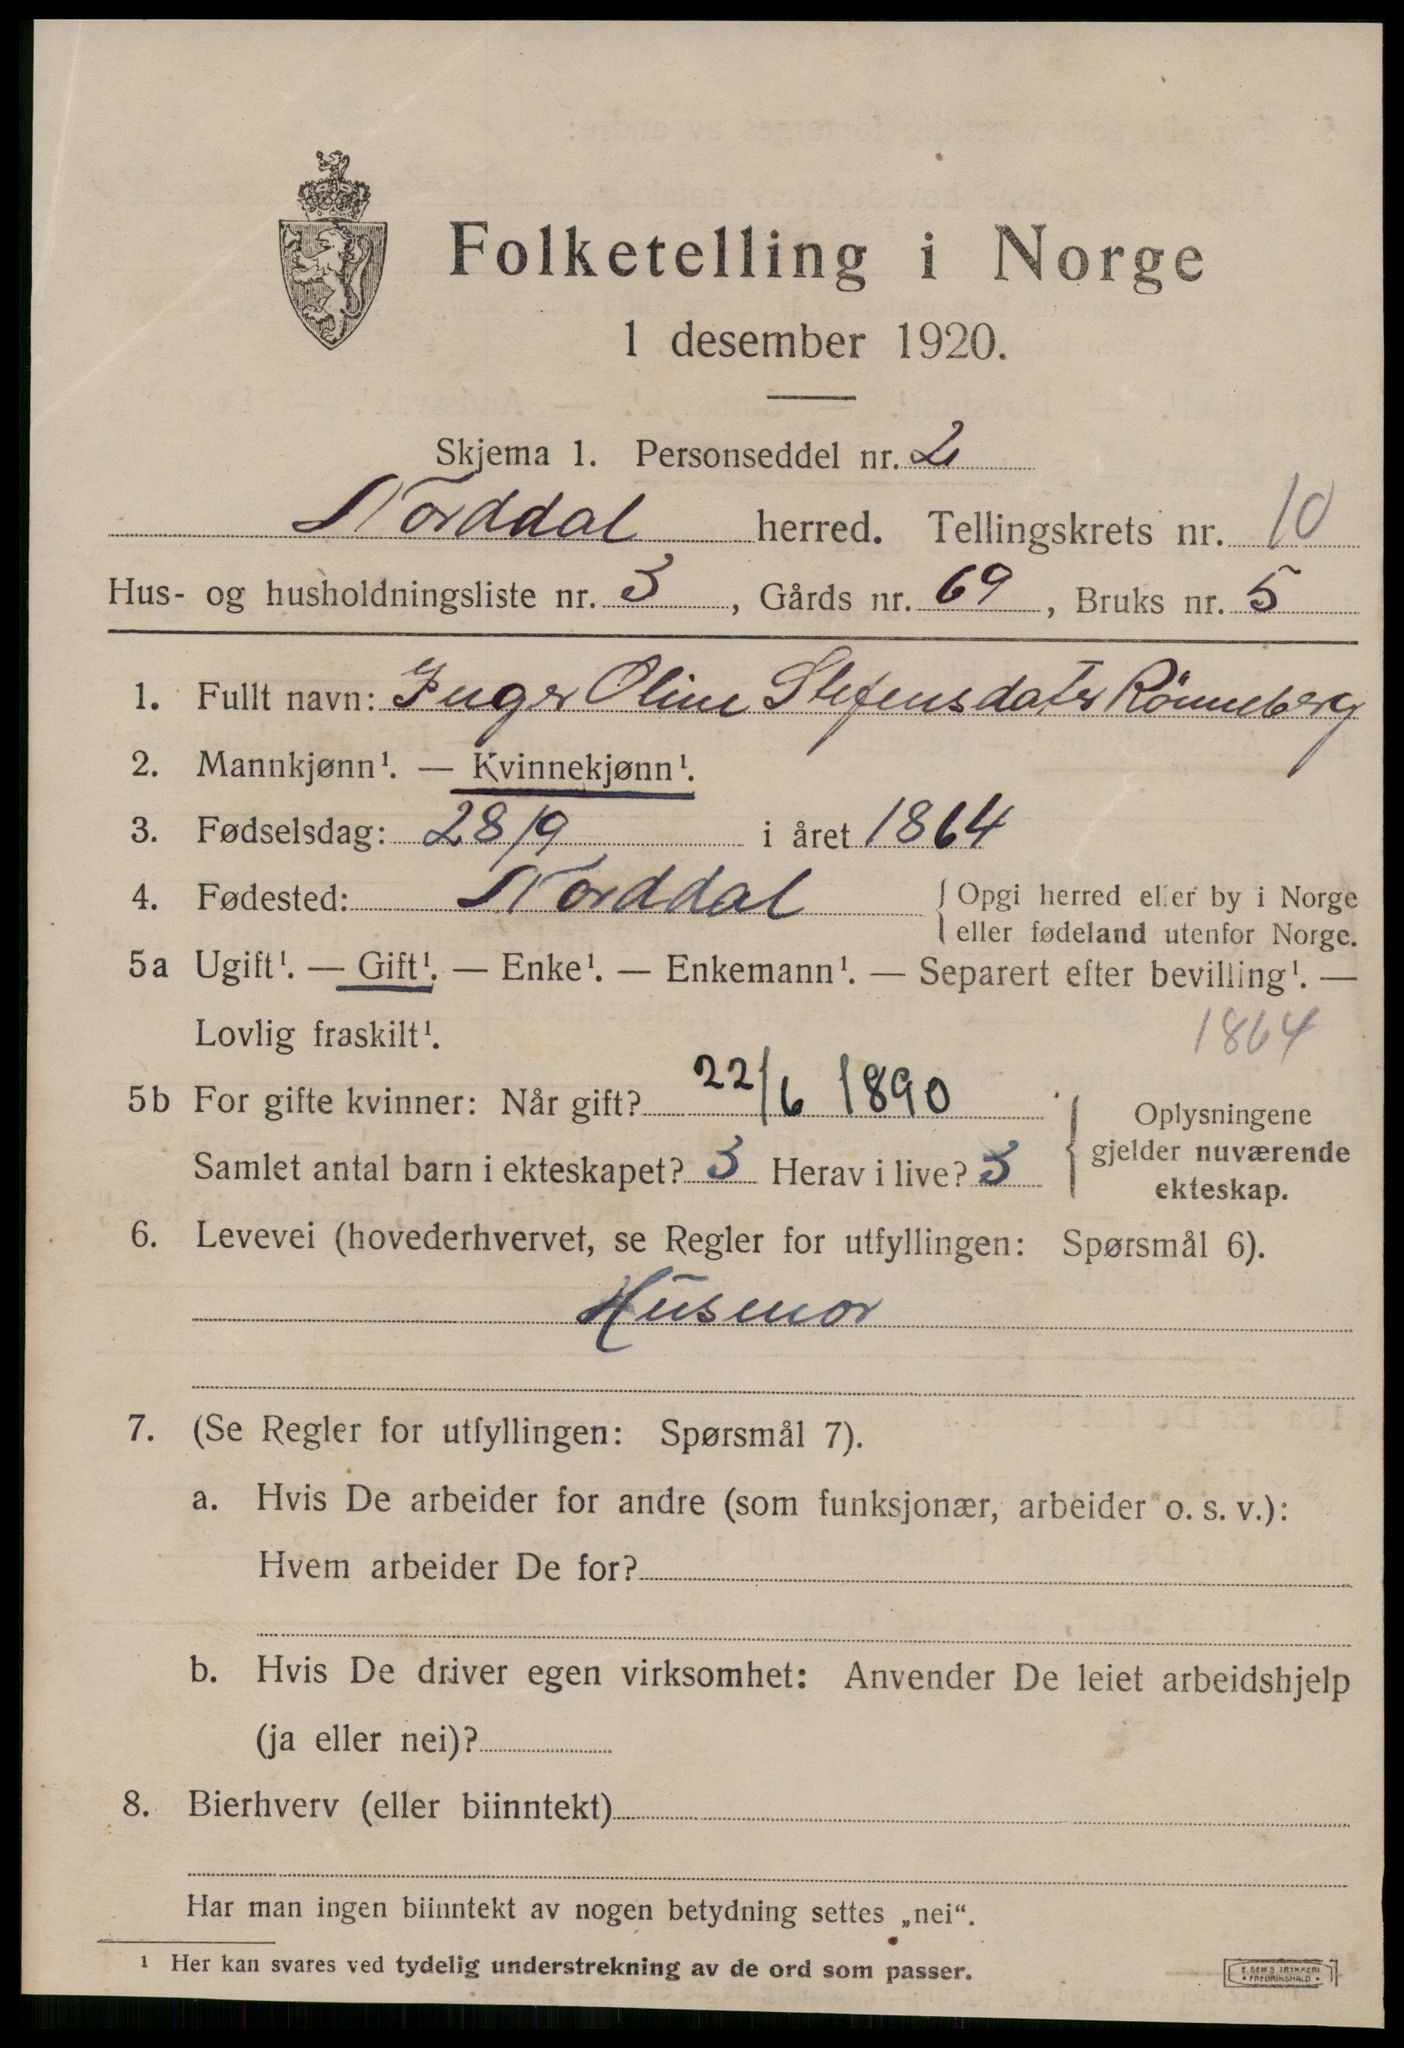 Folketelling i Norge
1 desember 1920.
Skjema 1. Personseddel nr. 2
Norddal herred. Tellingskrets nr. 10
Hus- og husholdningsliste nr. 3, Gårds nr. 69, Bruks nr. 5
1. Fullt navn: Inger Oline Stefensdater Rönneberg
2. Mannkjønn¹. — Kvinnekjønn¹.
3. Fødselsdag: 28/9 i året 1864
4. Fødested: Norddal {Opgi herred eller by i Norge
eller fødeland utenfor Norge.
5a Ugift¹. — Gift¹. — Enke¹. — Enkemann¹. — Separert efter bevilling¹. —
Lovlig fraskilt¹. 1864
5b For gifte kvinner: Når gift? 22/6 1890
Samlet antal barn i ekteskapet? 3 Herav i live? 3
{Oplysningene
gjelder nuværende
ekteskap.
6. Levevei (hovederhvervet, se Regler for utfyllingen: Spørsmål 6).
Husmor
7. (Se Regler for utfyllingen: Spørsmål 7).
a. Hvis De arbeider for andre (som funksjonær, arbeider o. s. v.):
Hvem arbeider De for?
b. Hvis De driver egen virksomhet: Anvender De leiet arbeidshjelp
(ja eller nei)?
8. Bierhverv (eller biinntekt)
Har man ingen biinntekt av nogen betydning settes „nei“.
¹ Her kan svares ved tydelig understrekning av de ord som passer.
E. SEM'S TRYKKERI
FREDRIKSHALD